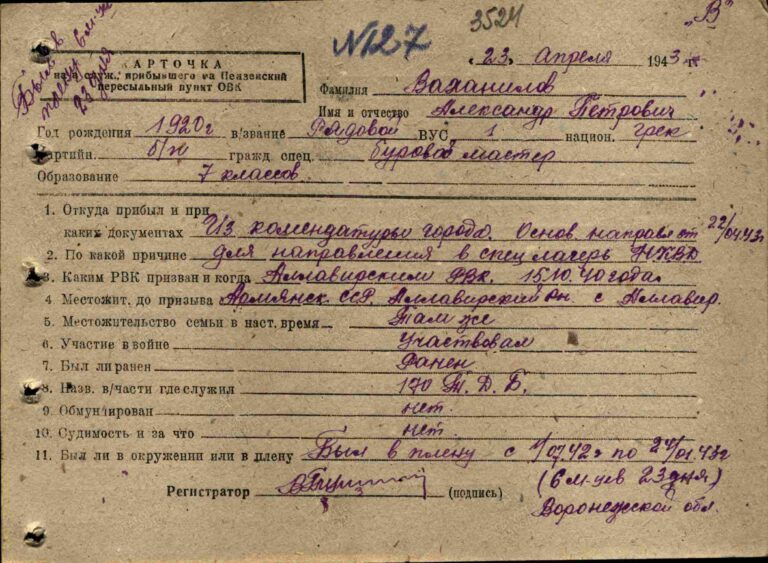 №127
3524
"В"
Был в
плену 6 м-цев
23 дня
"23" апреля 1943 г.
КАРТОЧКА
на служ., прибывшего на Пензенский
пересыльный пункт ОВК
Фамилия Ваханилов
Имя и отчество Александр Петрович
Год рождения 1920г в/звание Рядовой ВУС 1 национ. грек
Партийн. б/п гражд спец. буровой мастер
Образование 7 классов
1. Откуда прибыл и при
каких документах Из комендатуры города. Основ. направл от 22/04.43г
2. По какой причине для направления в спец лагерь НКВД
3. Каким РВК призван и когда Аллавирским РВК. 15.10.40 года.
4 Местожит. до призыва Армянск. ССР. Аллавирский рн. с Аллавир.
5. Местожительство семьи в наст. время Там же
6. Участие в войне Участвовал
7. Был ли ранен Ранен
8. Назв. в/части где служил 170 Т. Д. Б.
9. Обмундирован нет.
10. Судимость и за что нет
11. Был ли в окружении или в плену Был в плену с 1/07.42г по 24/01.43г
(6 м-цев 23 дня)
Регистратор (подпись)
Воронежской обл.